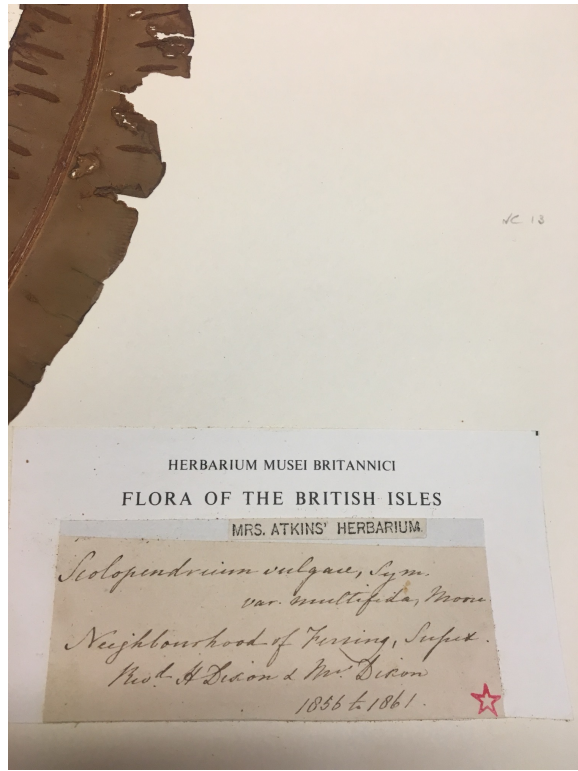 NC 13
HERBARIUM MUSEI BRITANNICI
FLORA OF THE BRITISH ISLES
MRS. ATKINS' HERBARIUM.
Scolopendrium vulgare, Sym.
var. multifida, Moore
Neighbourhood of Ferring, Sussex.
Revd. H Dixon & Mrs Dixon
1856 to 1861.